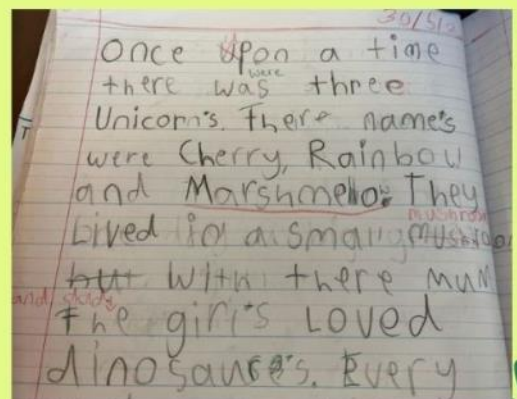 30/5/
Once upon a time
were
there was three
Unicorn's. There name's
were Cherry, Rainbow
and Marshmello. They
mushroo
Lived in a small mushroo
but with there mum
and dad
The girl's Loved
dinosaure's. Every